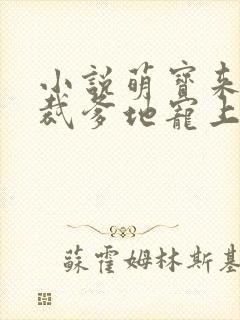 小說萌寶來
裁爹地寵上
蘇霍姆林斯基